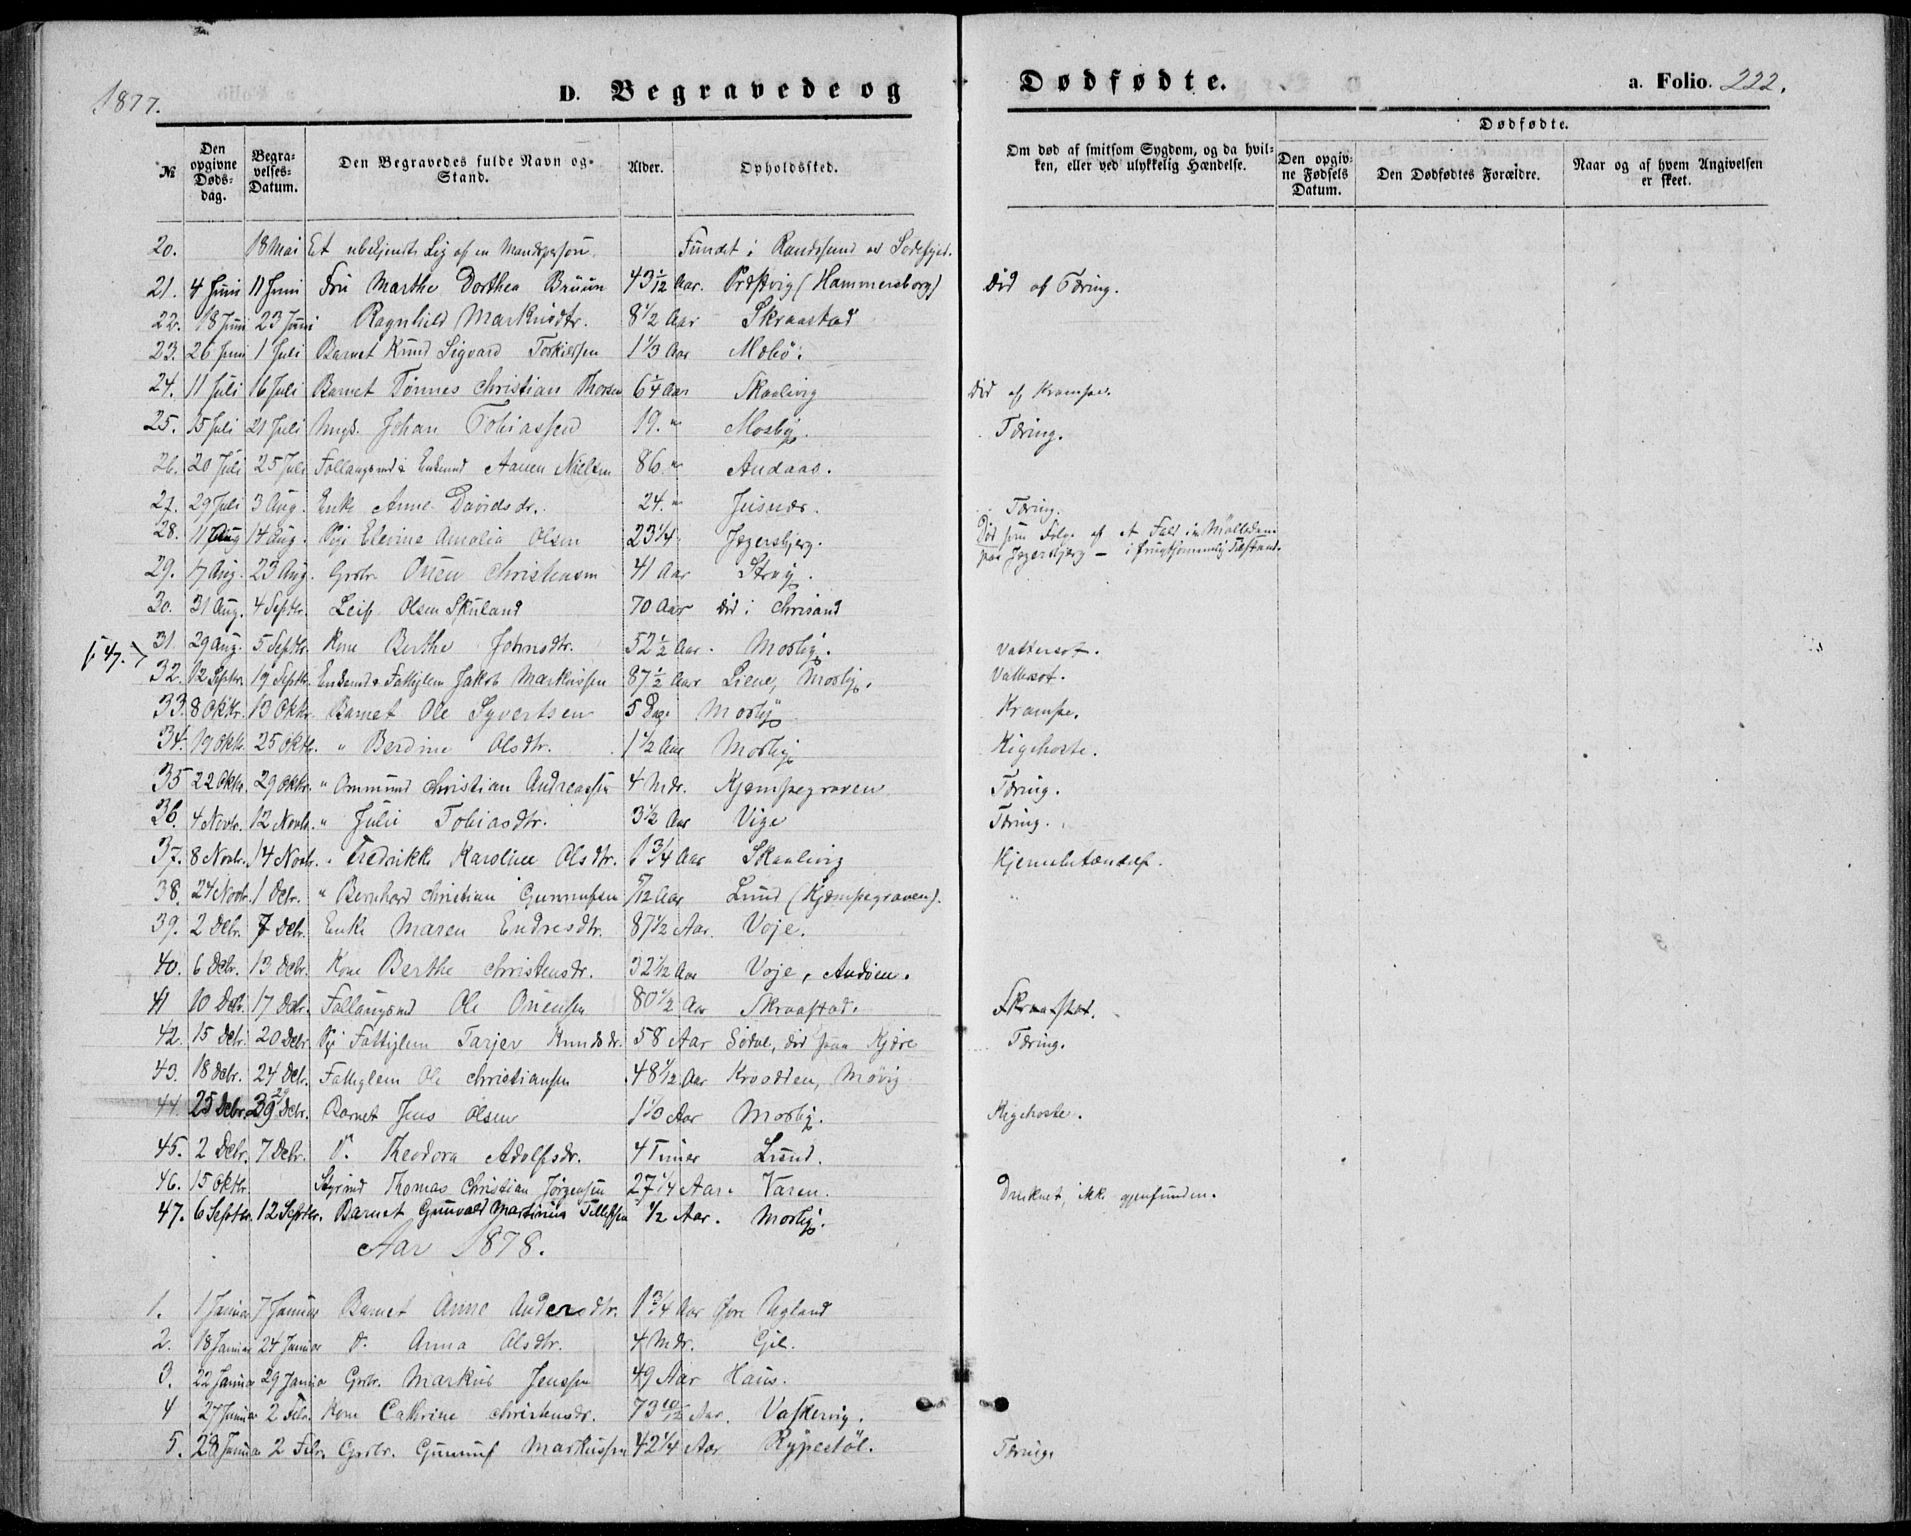 1877.
D. Begravede og Dødfødte.
a. Folio. 222.
№ Den opgivne Døds-dag. Begra-velses-Datum. Den Begravedes fulde Navn og Stand. Alder. Opholdssted. Om død af smitsom Sygdom, og da hvil-ken, eller ved ulykkelig Hændelse. Dødfødte. Den opgiv-ne Fødsels Datum. Den Dødfødtes Forældre. Naar og af hvem Angivelsen er skeet.
20. 18 Mai Et ubekjendt Lig af en Mandsperson. Fundet i Randøsund
21. 4 Juni 11 Juni Fru Marthe Dorthea Bruun 43 1/12 Aar. Prestvig (Hammersborg) Død af Tæring.
22. 18 Juni 23 Juni Ragnhild Markusdtr. 8 1/2 Aar Skraastad
23. 26 Juni 1 Juli Barnet Knud Sigvard Torkildsen 1 1/3 Aar Mæbø.
24. 11 Juli 16 Juli Barnet Tønnes Christian Thorsen 6 1/4 Aar Skaalevig Død af Krampe.
25. 15 Juli 21 Juli Ungk. Johan Tobiassen 19. " Mosby. Tæring.
26. 20 Juli 25 Juli Follaugsmd & Enkemd Aanen Nielsen 86. " Andaas.
27. 29 Juli 3 Aug. Enke Anne Davidsdr. 24. " Jusnæs. Tæring.
28. 11 Aug 14 Aug. Pige Elevine Amalia Olsen 23 1/4 Jegersbjerg. Død som Følge af et Fald i Mølledam
paa Jegersbjerg — i frugtsommelig Tilstand.
29. 17 Aug. 23 Aug. Grdbr. Onen Christensen 41 Aar Stray.
30. 31 Aug. 4 Septbr. Leif Olsen Skuland 70 Aar død i Chrisand
31. 29 Aug. 5 Septbr. Kone Berthe Johnsdtr. 52 1/2 Aar. Mosby. Vattersot.
f. 47.
32. 12 Septbr. 19 Septbr. Enkemd & Fattiglem Jakob Markussen 87 1/2 Aar Liene, Mosby. Vattersot.
33. 8 Oktbr. 13 Oktbr. Barnet Ole Syvertsen 5 Dage Mosby Krampe.
34. 19 Oktbr. 25 Oktbr. " Berdine Olsdtr. 1 1/2 Aar Mosby Kigehoste.
35 22 Oktbr. 29 Oktbr. " Ommund Christian Andreassen 4 Mdr. Kjempegraven Tæring.
36. 4 Novbr. 12 Novbr. " Julie Tobiasdtr. 3 1/2 Aar Vige Tæring.
37. 8 Novbr. 14 Novbr. " Fredrikke Karoline Olsdtr. 1 3/4 Aar Skaalevig Hjernebetændelse.
38. 24 Novbr. 1 Debr. " Bernhard Christian Gunnufsen 5/12 Aar Lund (Kjempegraven).
39. 2 Debr. 7 Debr. Enke Maren Endresdtr. 87 1/2 Aar. Voje.
40. 6 Debr. 13 Debr. Kone Berthe Christensdr. 32 1/2 Aar Voje, Andøen.
41 10 Debr. 17 Debr. Follaugsmd Ole Onensen 80 1/2 Aar Skraastad. Skraastad.
42. 15 Debr. 20 Debr. Pige Fattiglem Tarjer Knudsdr. 58 Aar Sødal, død paa Kjære Tæring.
43. 18 Debr. 24 Debr. Fattiglem Ole Christiansen 48 1/2 Aar Krodden, Møvig
44. 25 Debr. 29 Debr. Barnet Jens Olsen Aar Mosby. Kigehoste.
45. 2 Debr. 7 Debr. D. Theodora Adolfsdr. 4 Timer Lund.
46. 15 Oktbr. Styrmd Thomas Christian Jørgensen 27 1/4 Aar. Varen. Druknet, ikke gjenfunden.
47. 6 Septbr. 12 Septbr. Barnet Gunvald Martinius Tellefsen 1/2 Aar. Mosby.
Aar 1878.
1. 1 Januar 7 Januar Barnet Anne Andersdtr. 1 3/4 Aar Øvre Ugland
2. 18 Januar 24 Januar D. Anna Olsdtr. 4 Mdr. Gil.
3. 22 Januar 29 Januar Grdbr. Markus Jenssen 49 Aar Haus.
4 27 Januar 2 Febr. Kone Cathrine Christensdr. 73 10/12 Aar. Vaskervig.
5. 28 Januar 2 Febr. Grdbr. Gunnuf Markussen 42 1/4 Aar Rypestøl. Tæring.